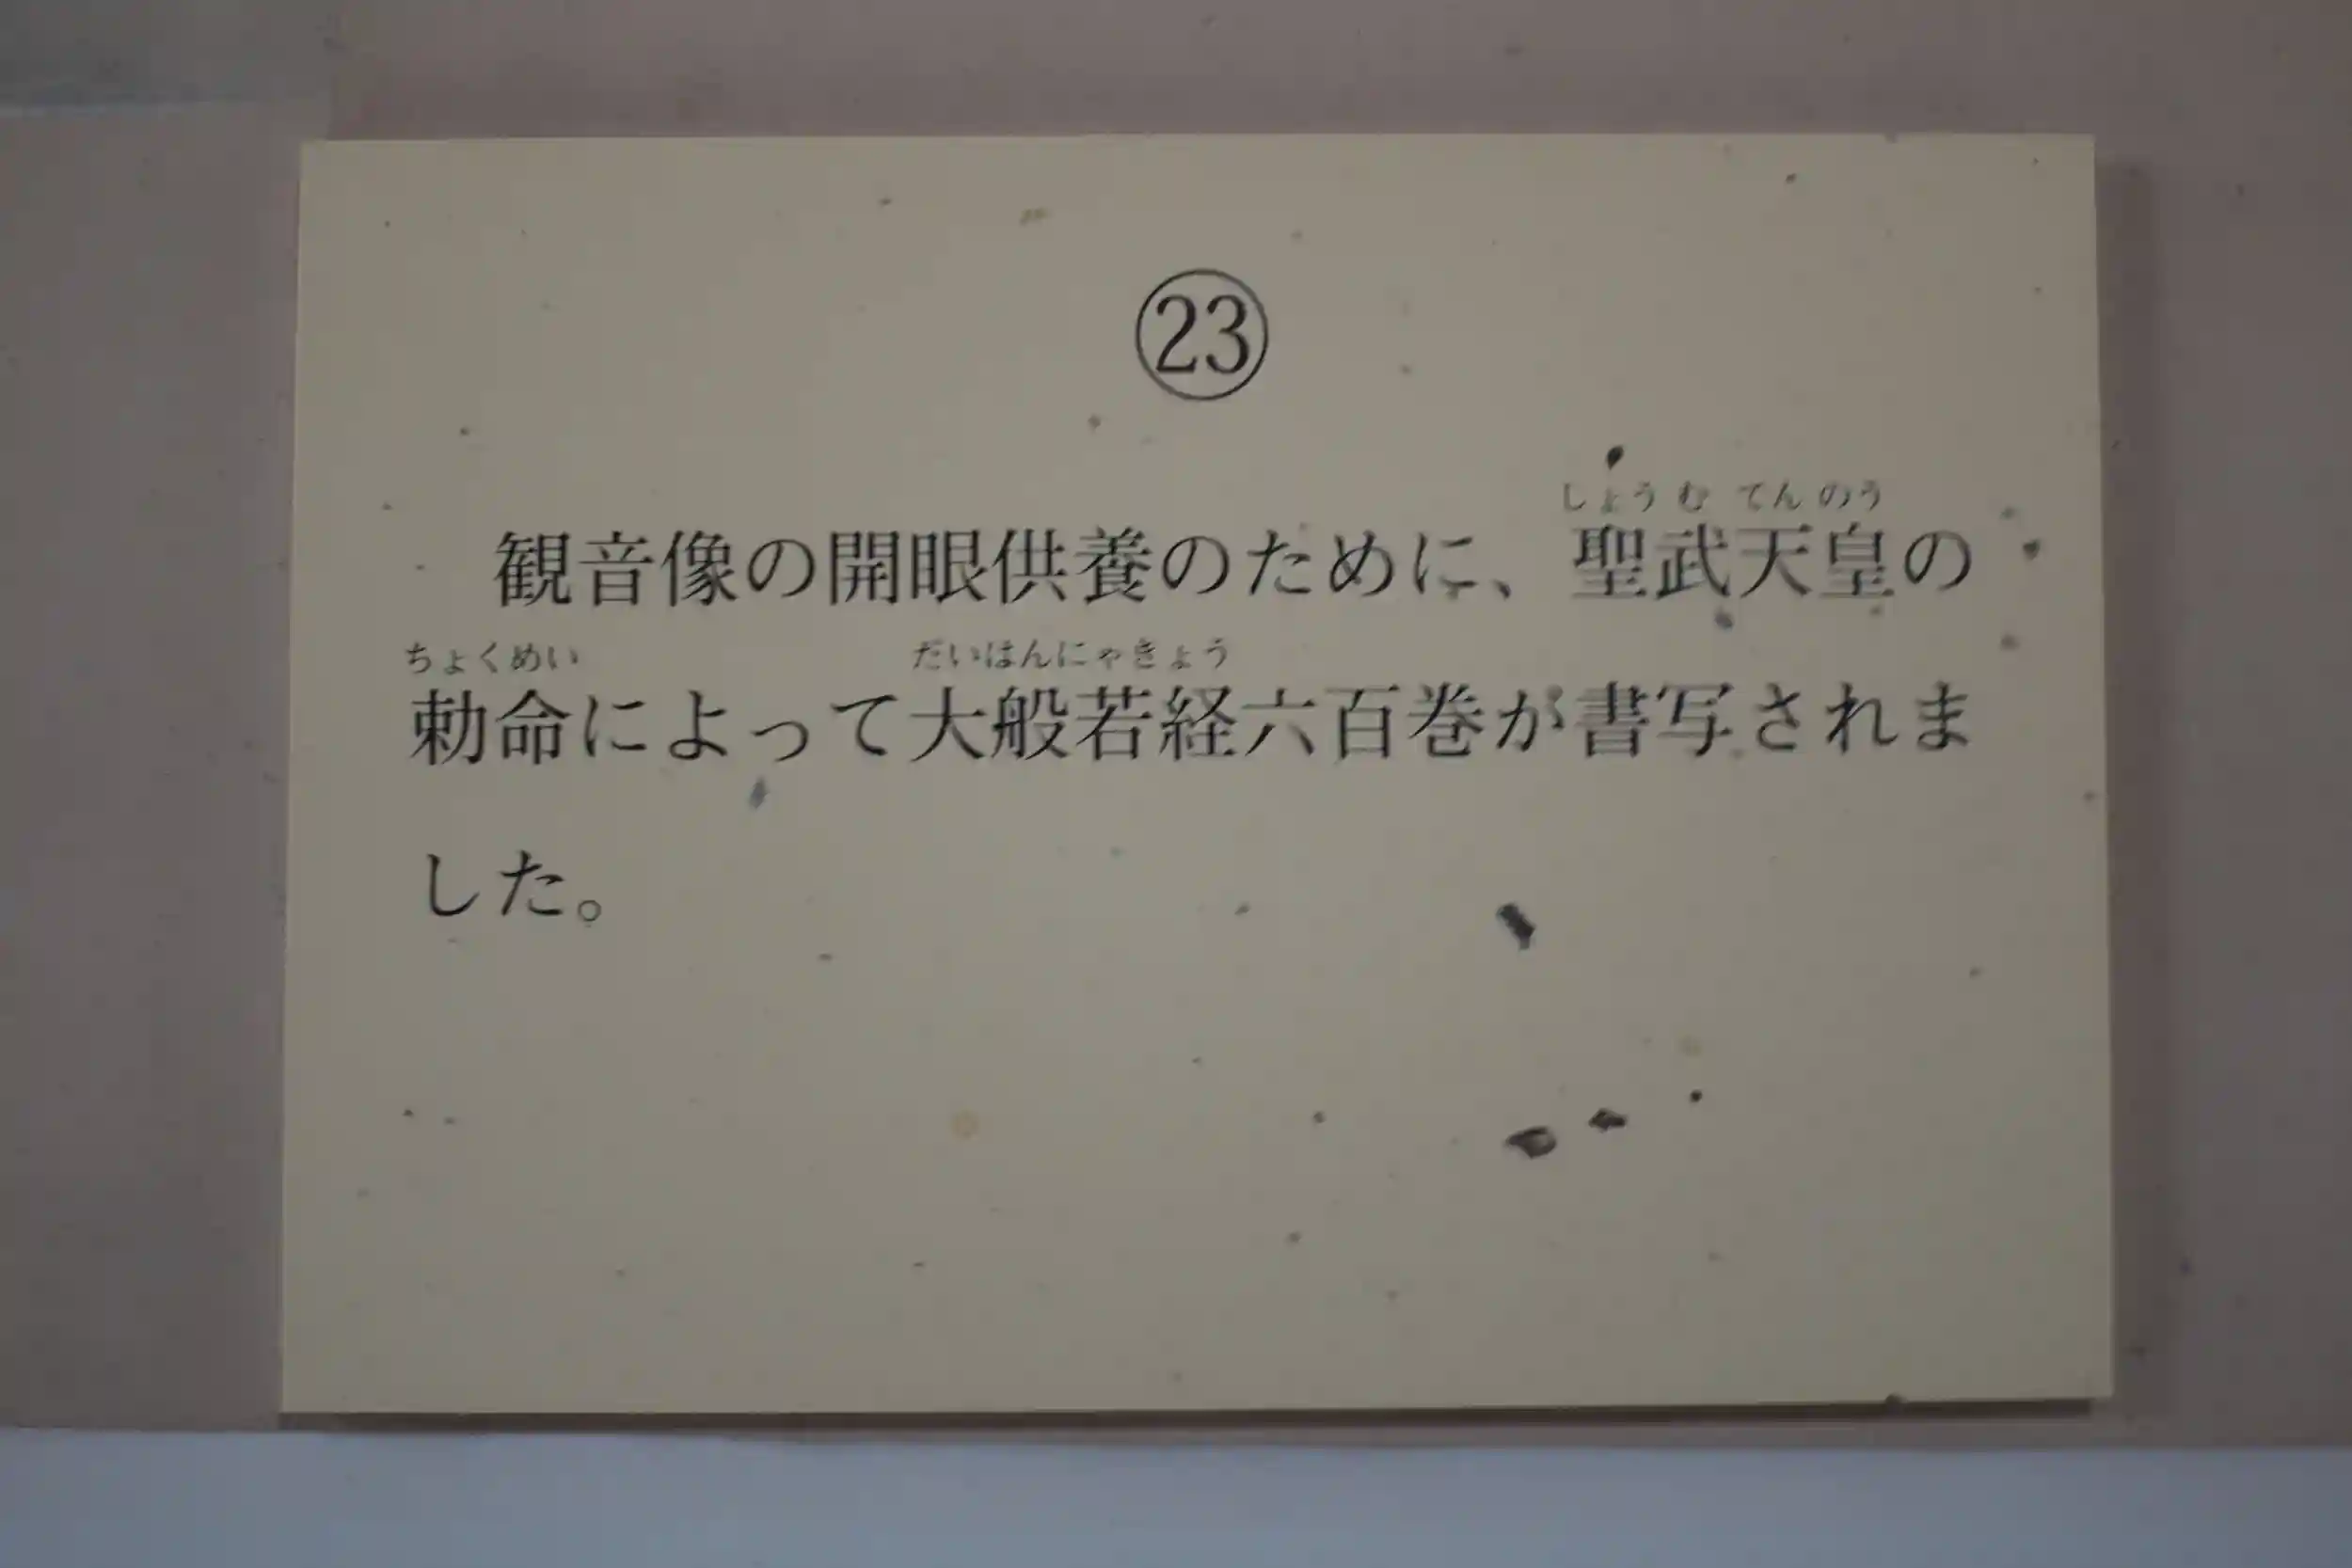 ㉓
しょうむてんのう
観音像の開眼供養のために、聖武天皇の
ちょくめい だいはんにゃきょう
勅命によって大般若経六百巻が書写されま
した。